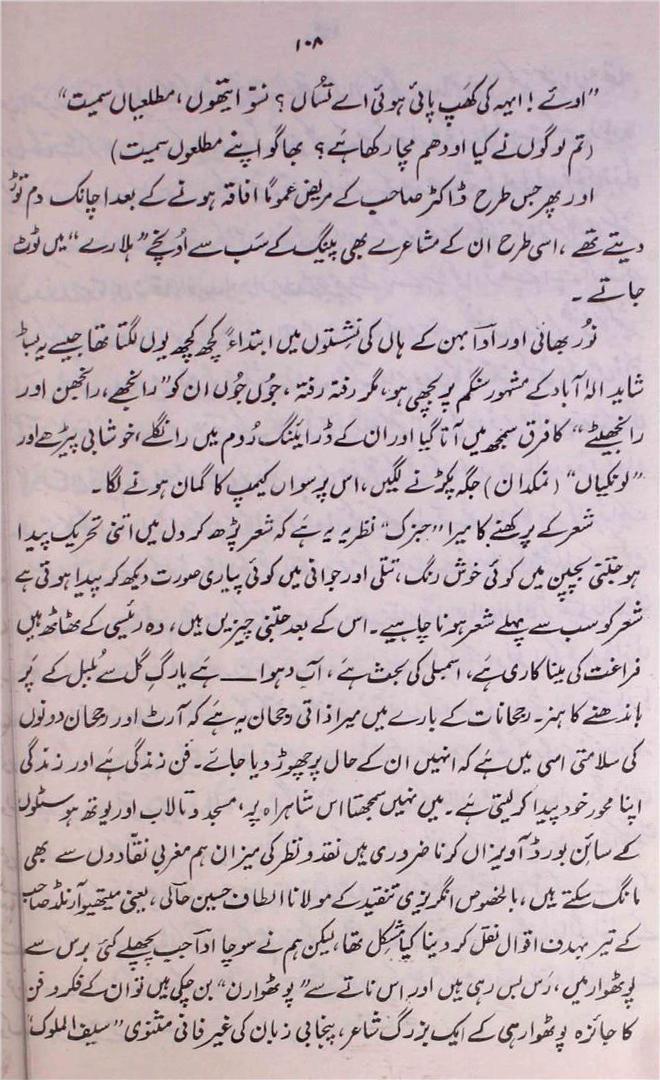 ۱۰۸
"اوئے! ایہہ کی کھپ پائی ہوئی اے تساں؟ نسّو ایتھوں، مطلعیاں سمیت"
(تم لوگوں نے کیا اودھم مچا رکھا ہے؟ بھاگو اپنے مطلعوں سمیت)
اور پھر جس طرح ڈاکٹر صاحب کے مریض عموماً افاقہ ہونے کے بعد اچانک دم توڑ
دیتے تھے، اسی طرح ان کے مشاعرے بھی پینگ کے سب سے اونچے "ہلارے" میں ٹوٹ
جاتے۔
نور بھائی اور اداؔ بہن کے ہاں کی نشستوں میں ابتداءً کچھ کچھ یوں لگتا تھا جیسے یہ بساط
شاید الٰہ آباد کے مشہور سنگم پر بچھی ہو، مگر رفتہ رفتہ، جوں جوں ان کو "رانجھے، رانجھن اور
رانجھیٹے" کا فرق سمجھ میں آتا گیا اور ان کے ڈرائینگ روم میں رانگلے، خوشابی پیڑھے اور
"لونکیاں" (نمکدان) جگہ پکڑنے لگیں، اس پر سواں کیمپ کا گمان ہونے لگا۔
شعر کے پرکھنے کا میرا "جنرک" نظریہ یہ ہے کہ شعر پڑھ کر دل میں اتنی تحریک پیدا
ہو جتنی بچپن میں کوئی خوش رنگ، تتلی اور جوانی میں کوئی پیاری صورت دیکھ کر پیدا ہوتی ہے
شعر کو سب سے پہلے شعر ہونا چاہیے۔ اس کے بعد جتنی چیزیں ہیں، وہ رئیسی کے ٹھاٹھ ہیں
فراغت کی مینا کاری ہے، اسمبلی کی بحث ہے، آب و ہوا ــــ ہے یا رگِ گل سے بلبل کے پر
باندھنے کا ہنر۔ رجحانات کے بارے میں میرا ذاتی رجحان یہ ہے کہ آرٹ اور رجحان دونوں
کی سلامتی اسی میں ہے کہ انہیں ان کے حال پر چھوڑ دیا جائے۔ فن زندگی ہے اور زندگی
اپنا محور خود پیدا کر لیتی ہے۔ میں نہیں سمجھتا اس شاہراہ پر، مسجد و تالاب اور یوتھ ہوسٹلوں
کے سائن بورڈ آویزاں کرنا ضروری ہیں نقد و نظر کی میزان ہم مغربی نقادوں سے بھی
مانگ سکتے ہیں، بالخصوص انگریزی تنقید کے مولانا الطاف حسین حالی، یعنی میتھیو آرنلڈ صاحب
کے تیر بہدف اقوال نقل کر دینا کیا مشکل تھا، لیکن ہم نے سوچا اداؔ جب پچھلے کئی برس سے
پوٹھوار میں، رَس بس رہی ہیں اور اس ناتے سے "پوٹھوارن" بن چکی ہیں تو ان کے فکر و فن
کا جائزہ پوٹھوار ہی کے ایک بزرگ شاعر، پنجابی زبان کی غیر فانی مثنوی "سیف الملوک"